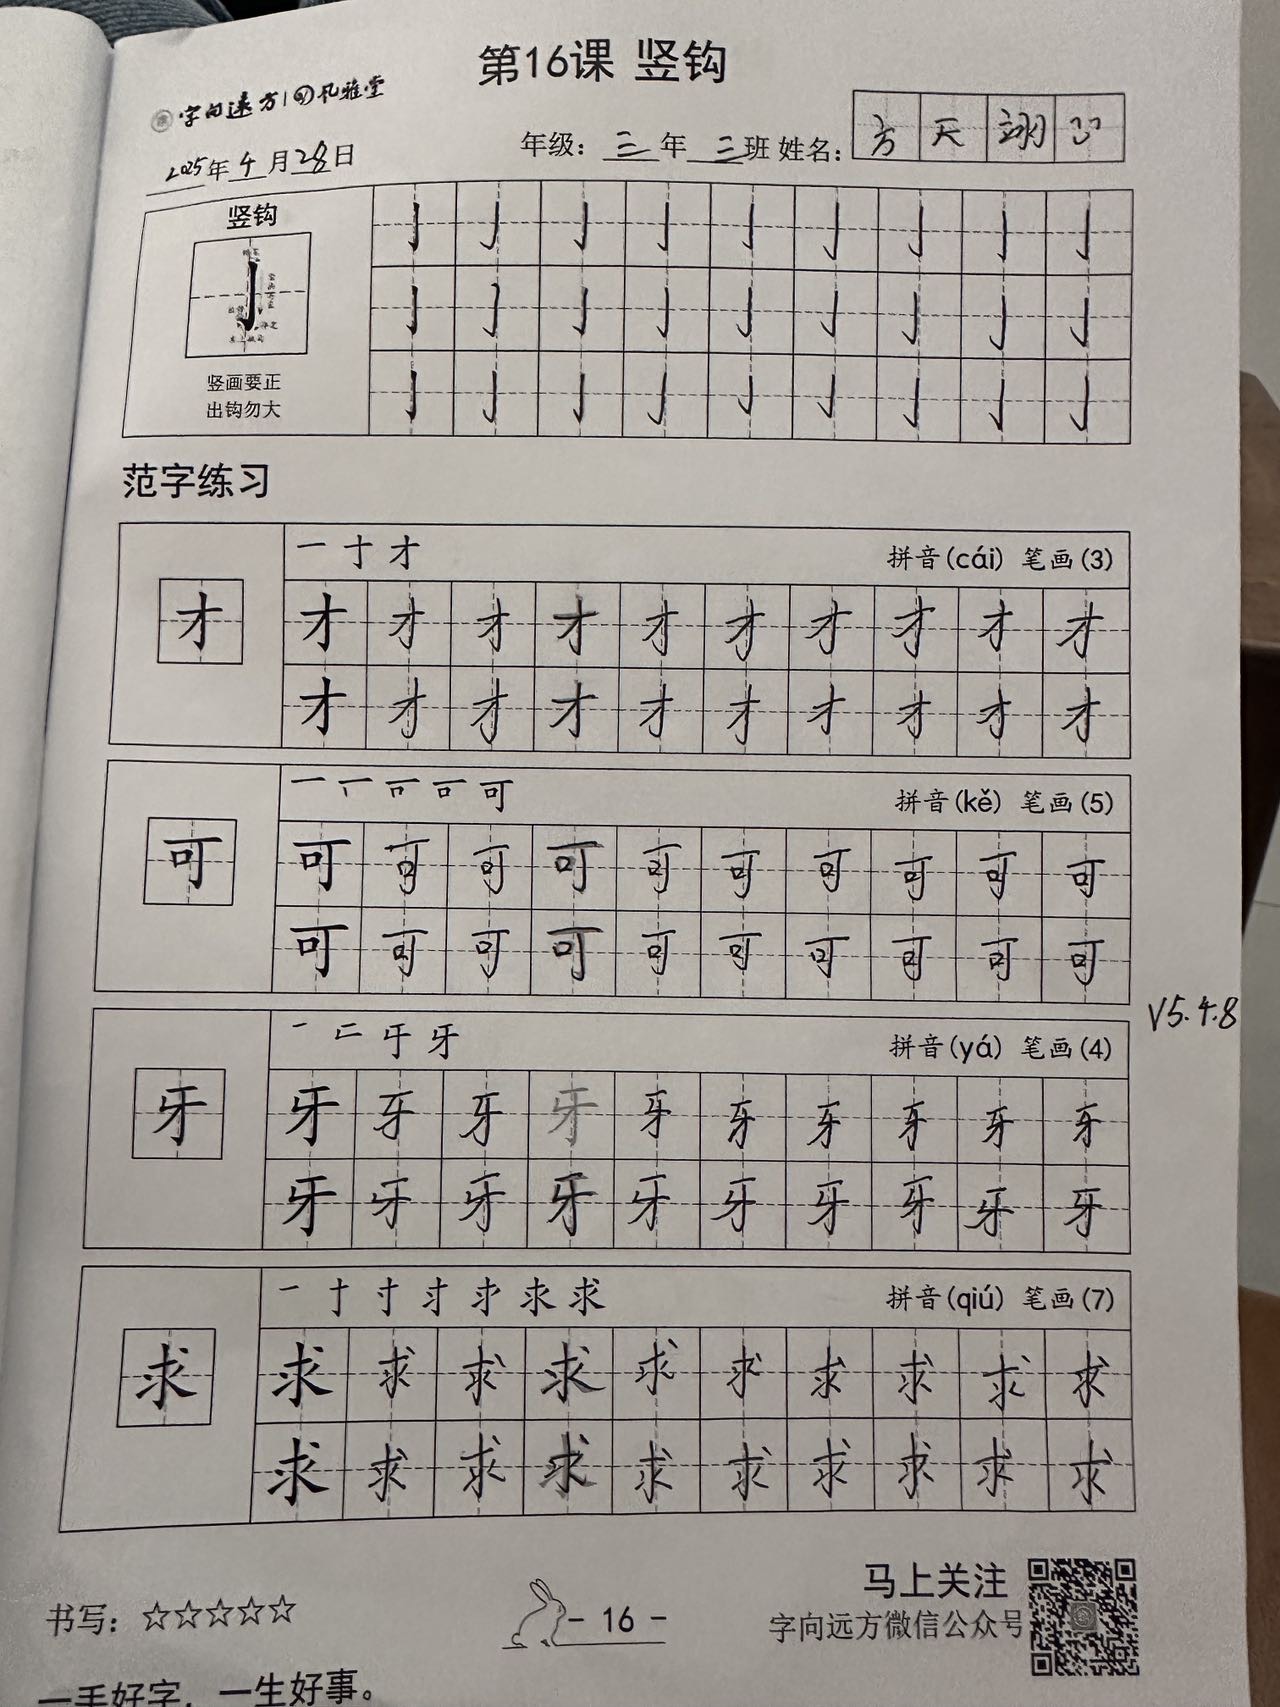 第16课 竖钩
字向远方 风雅堂
年级：三年三班 姓名：方天翊
2025年4月28日
竖钩
竖画要正
出钩勿大
范字练习
一 十 才 拼音(cái) 笔画(3)
才 才 才 才 才 才 才 才 才 才 才
才 才 才 才 才 才 才 才 才 才
拼音(kě) 笔画(5)
可 可 可 可 可 可 可 可 可 可 可
可 可 可 可 可 可 可 可 可 可
V5.4.8
拼音(yá) 笔画(4)
牙 牙 牙 牙 牙 牙 牙 牙 牙 牙 牙
牙 牙 牙 牙 牙 牙 牙 牙 牙 牙
拼音(qiú) 笔画(7)
求 求 求 求 求 求 求 求 求 求 求
求 求 求 求 求 求 求 求 求 求
书写：☆☆☆☆☆
- 16 -
马上关注
字向远方微信公众号
一手好字，一生好事。